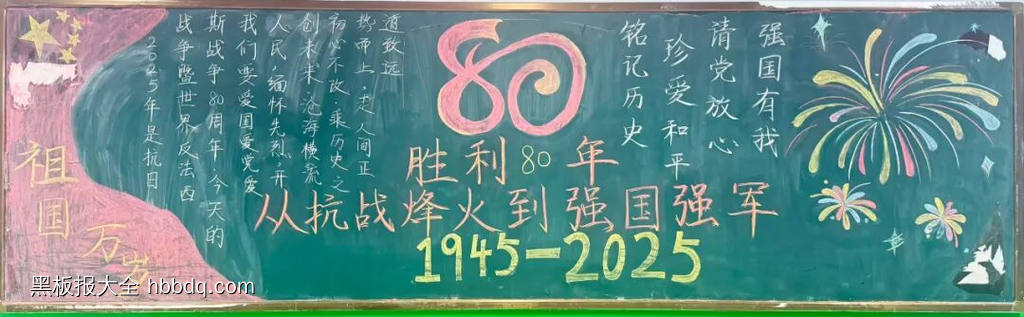 祖国万岁
2025年是抗日
战争暨世界反法西
斯战争80周年,今天的
我们要爱国爱党爱
人民,缅怀先烈,开
创未来,沧海横流
初心不改,乘历史之
势而上,走人间正
道致远
80
胜利80年
从抗战烽火到强国强军
1945-2025
铭记历史
珍爱和平
请党放心
强国有我
黑板报大全 hbbdq.com